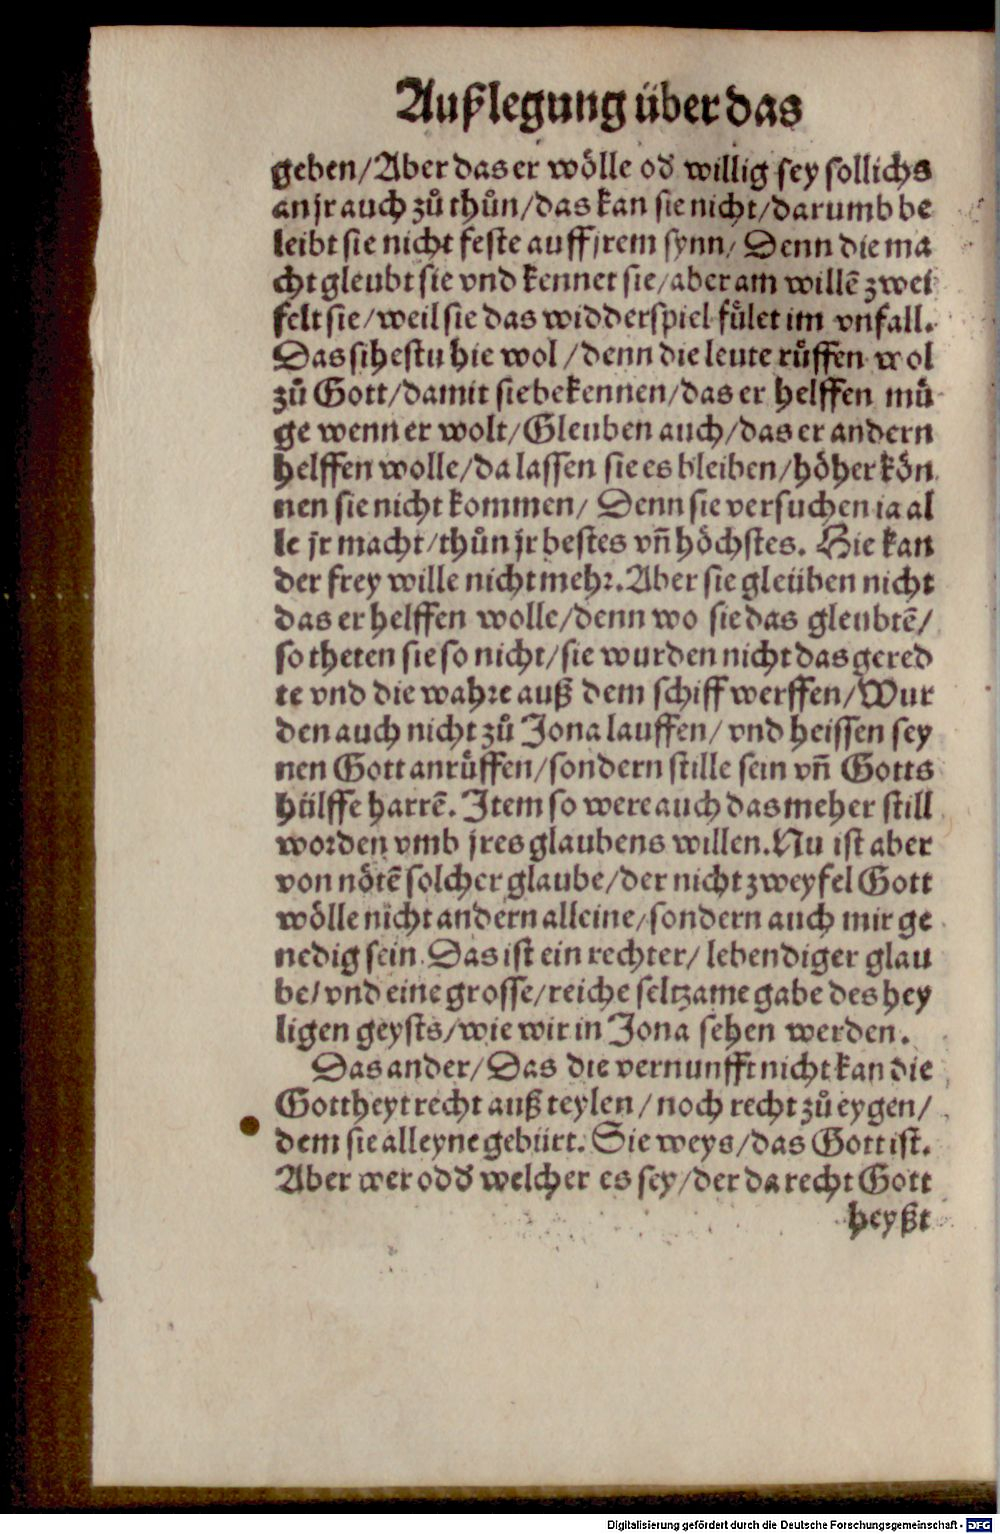 Außlegung über das
geben/Aber das er wölle od willig sey sollichs
an jr auch zů thůn/das kan sie nicht/darumb be
leibt sie nicht feste auff jrem synn/ Denn die ma
cht gleubt sie vnd kennet sie/aber am willẽ zwei
felt sie/weil sie das widderspiel fület im vnfall.
Das sihestu hie wol/denn die leute rüffen wol
zů Gott/damit sie bekennen/das er helffen mü
ge wenn er wolt/Gleuben auch/das er andern
helffen wolle/da lassen sie es bleiben/höher kön
nen sie nicht kommen/ Denn sie versuchen ia al
le jr macht/thůn jr bestes vñ höchstes. Hie kan
der frey wille nicht mehr. Aber sie gleüben nicht
das er helffen wolle/denn wo sie das gleubtẽ/
so theten sie so nicht/sie wurden nicht das gered
te vnd die wahre auß dem schiff werffen/Wur
den auch nicht zů Jona lauffen/ vnd heissen sey
nen Gott anrüffen/sondern stille sein vñ Gotts
hülffe harrẽ. Item so were auch das meher still
worden vmb jres glaubens willen. Nu ist aber
von nötẽ solcher glaube/der nicht zweyfel Gott
wölle nicht andern alleine/sondern auch mir ge
nedig sein. Das ist ein rechter/ lebendiger glau
be/vnd eine grosse/reiche seltzame gabe des hey
ligen geysts/wie wir in Jona sehen werden.
Das ander/Das die vernunfft nicht kan die
Gottheyt recht auß teylen/noch recht zů eygen/
dem sie alleyne gebürt. Sie weys/das Gott ist.
Aber wer odd welcher es sey/der da recht Gott
heyßt
Digitalisierung gefördert durch die Deutsche Forschungsgemeinschaft - DFG